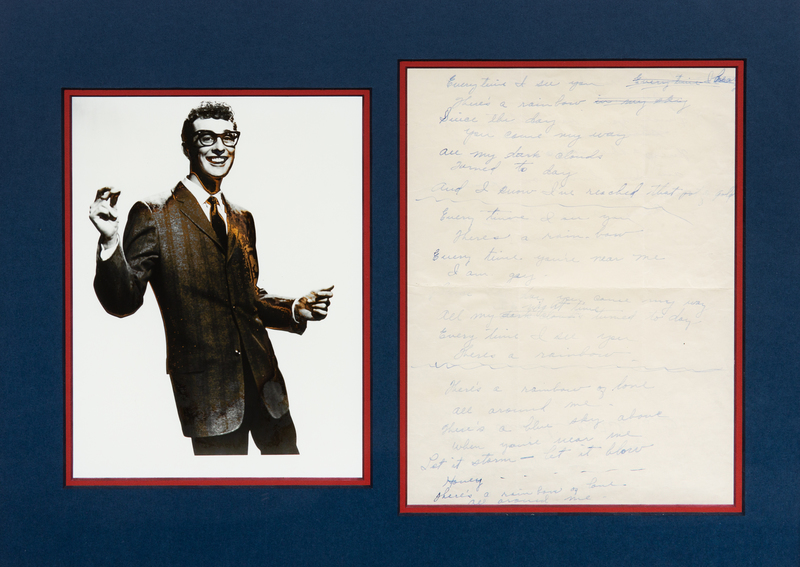 Every time I see you Every time I hear
There's a rainbow in my sky
Since the day
You came my way
All my dark clouds
Turned to day
And I know I've reached that
Every time I see you
There's a rainbow
Every time you're near me
I am gay
you came my way
All my turned to day
Every time I see you
There's a rainbow
There's a rainbow of love
all around me.
There's a blue sky above
When you're near me
Let it storm – let it blow
Honey - - - - -
There's a rainbow of love
all around me